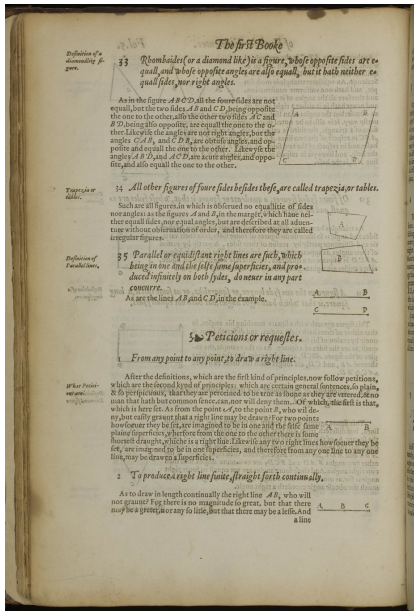 The first Booke
Definition of a
diamondlike fi-
gure.
33 Rhombaides (or a diamond like) is a figure, whose opposite sides are e-
quall, and whose opposite angles are also equall, but it hath neither e-
quall sides, nor right angles.
As in the figure ABCD, all the foure sides are not
equall, but the two sides AB and CD, being opposite
the one to the other, also the other two sides AC and
BD, being also opposite, are equall the one to the o-
ther. Likewise the angles are not right angles, but the
angles CAB, and CDB, are obtuse angles, and op-
posite and equall the one to the other. Likewyse the
angles ABD, and ACD, are acute angles, and oppo-
site, and also equall the one to the other.
A B
C D
Trapezia or
tables.
34 All other figures of foure sides besides these, are called trapezia, or tables.
Such are all figures, in which is obserued no equallitie of sides
nor angles: as the figures A and B, in the margent, which haue nei-
ther equall sides, nor equal angles, but are described at all aduen-
ture without obseruation of order, and therefore they are called
irregular figures.
A
B
Definition of
Parallel lines.
35 Parallel or equidistant right lines are such, which
being in one and the selfe same superficies, and pro-
duced infinitely on both sydes, do neuer in any part
concurre.
As are the lines AB, and CD, in the example.
A B
C D
Peticions or requestes.
1 From any point to any point, to draw a right line.
What Petici-
ons are.
After the definitions, which are the first kind of principles, now follow petitions,
which are the second kynd of principles: which are certain general sentences, so plain,
& so perspicuous, that they are perceiued to be true as soone as they are vttered, & no
man that hath but common sence, can, nor will deny them. Of which, the first is that,
which is here set. As from the point A, to the point B, who will de-
ny, but easely graunt that a right line may be drawn? For two points
howsoeuer they be set, are imagined to be in one and the selfe same
plaine superficies, wherfore from the one to the other there is some
shortest draught, whiche is a right line. Likewise any two right lines howsoeuer they be
set, are imagined to be in one superficies, and therefore from any one line to any one
line, may be drawen a superficies.
A B
2 To produce a right line finite, straight forth continually.
As to draw in length continually the right line AB, who will
not graunt? For there is no magnitude so great, but that there
may be a greter, nor any so litle, but that there may be a lesse. And
A B C
a line